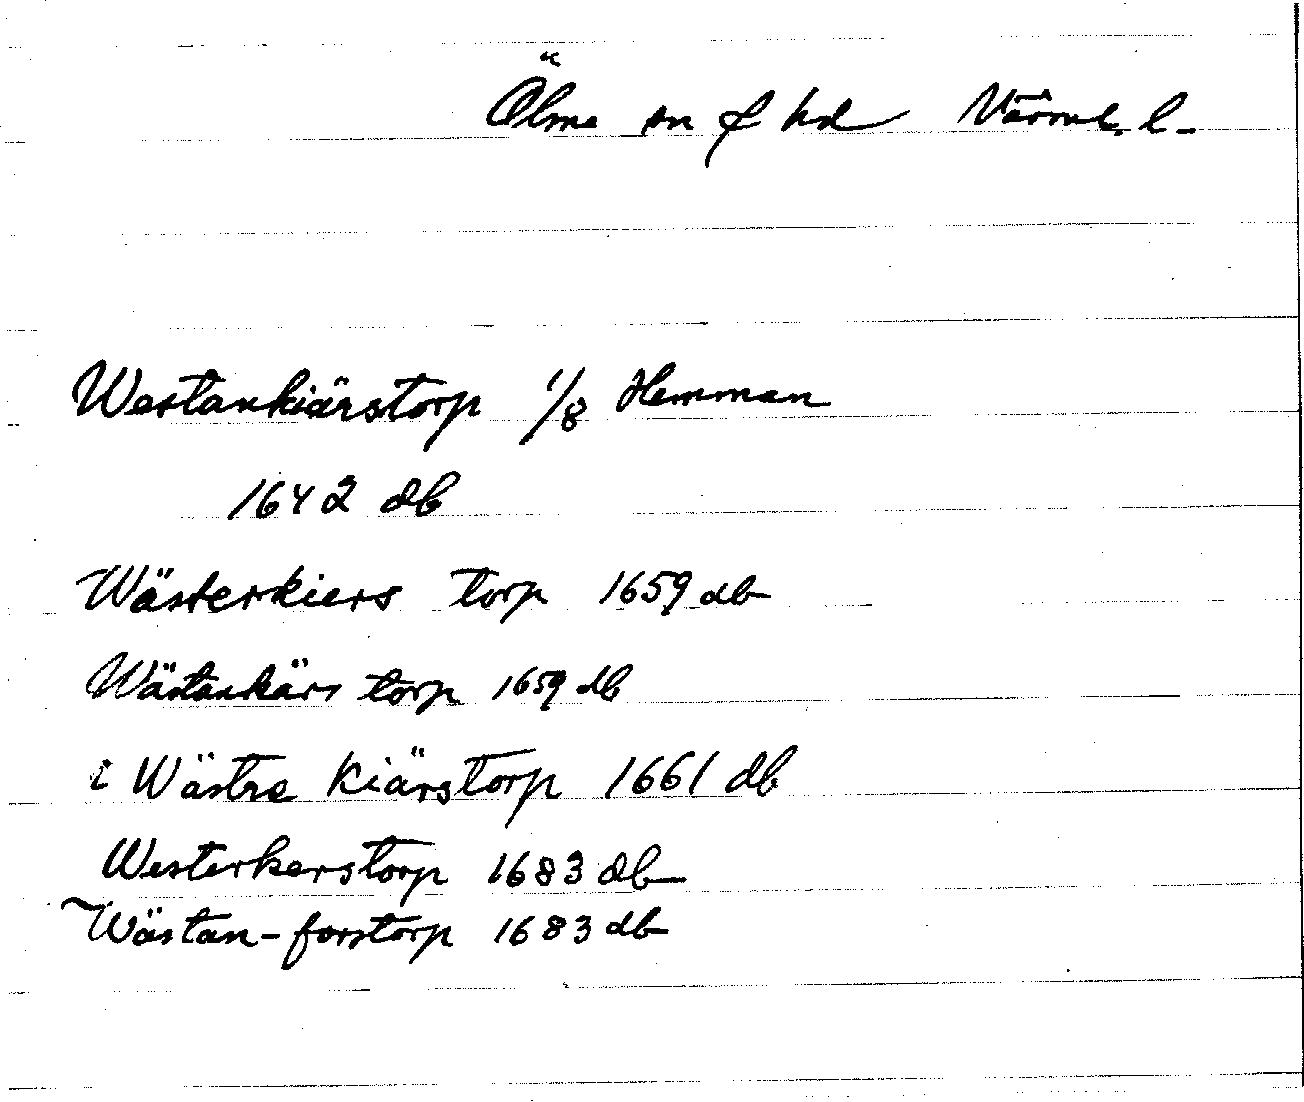 Ölme sn & hd Värml. l.
Westankiärstorp 1/8 Hemman
1642 db
Wästerkiers torp 1659 db
Wästankärs torp 1659 db
i Wästre kiärstorp 1661 db
Westerkerstorp 1683 db
Wästan-forstorp 1683 db